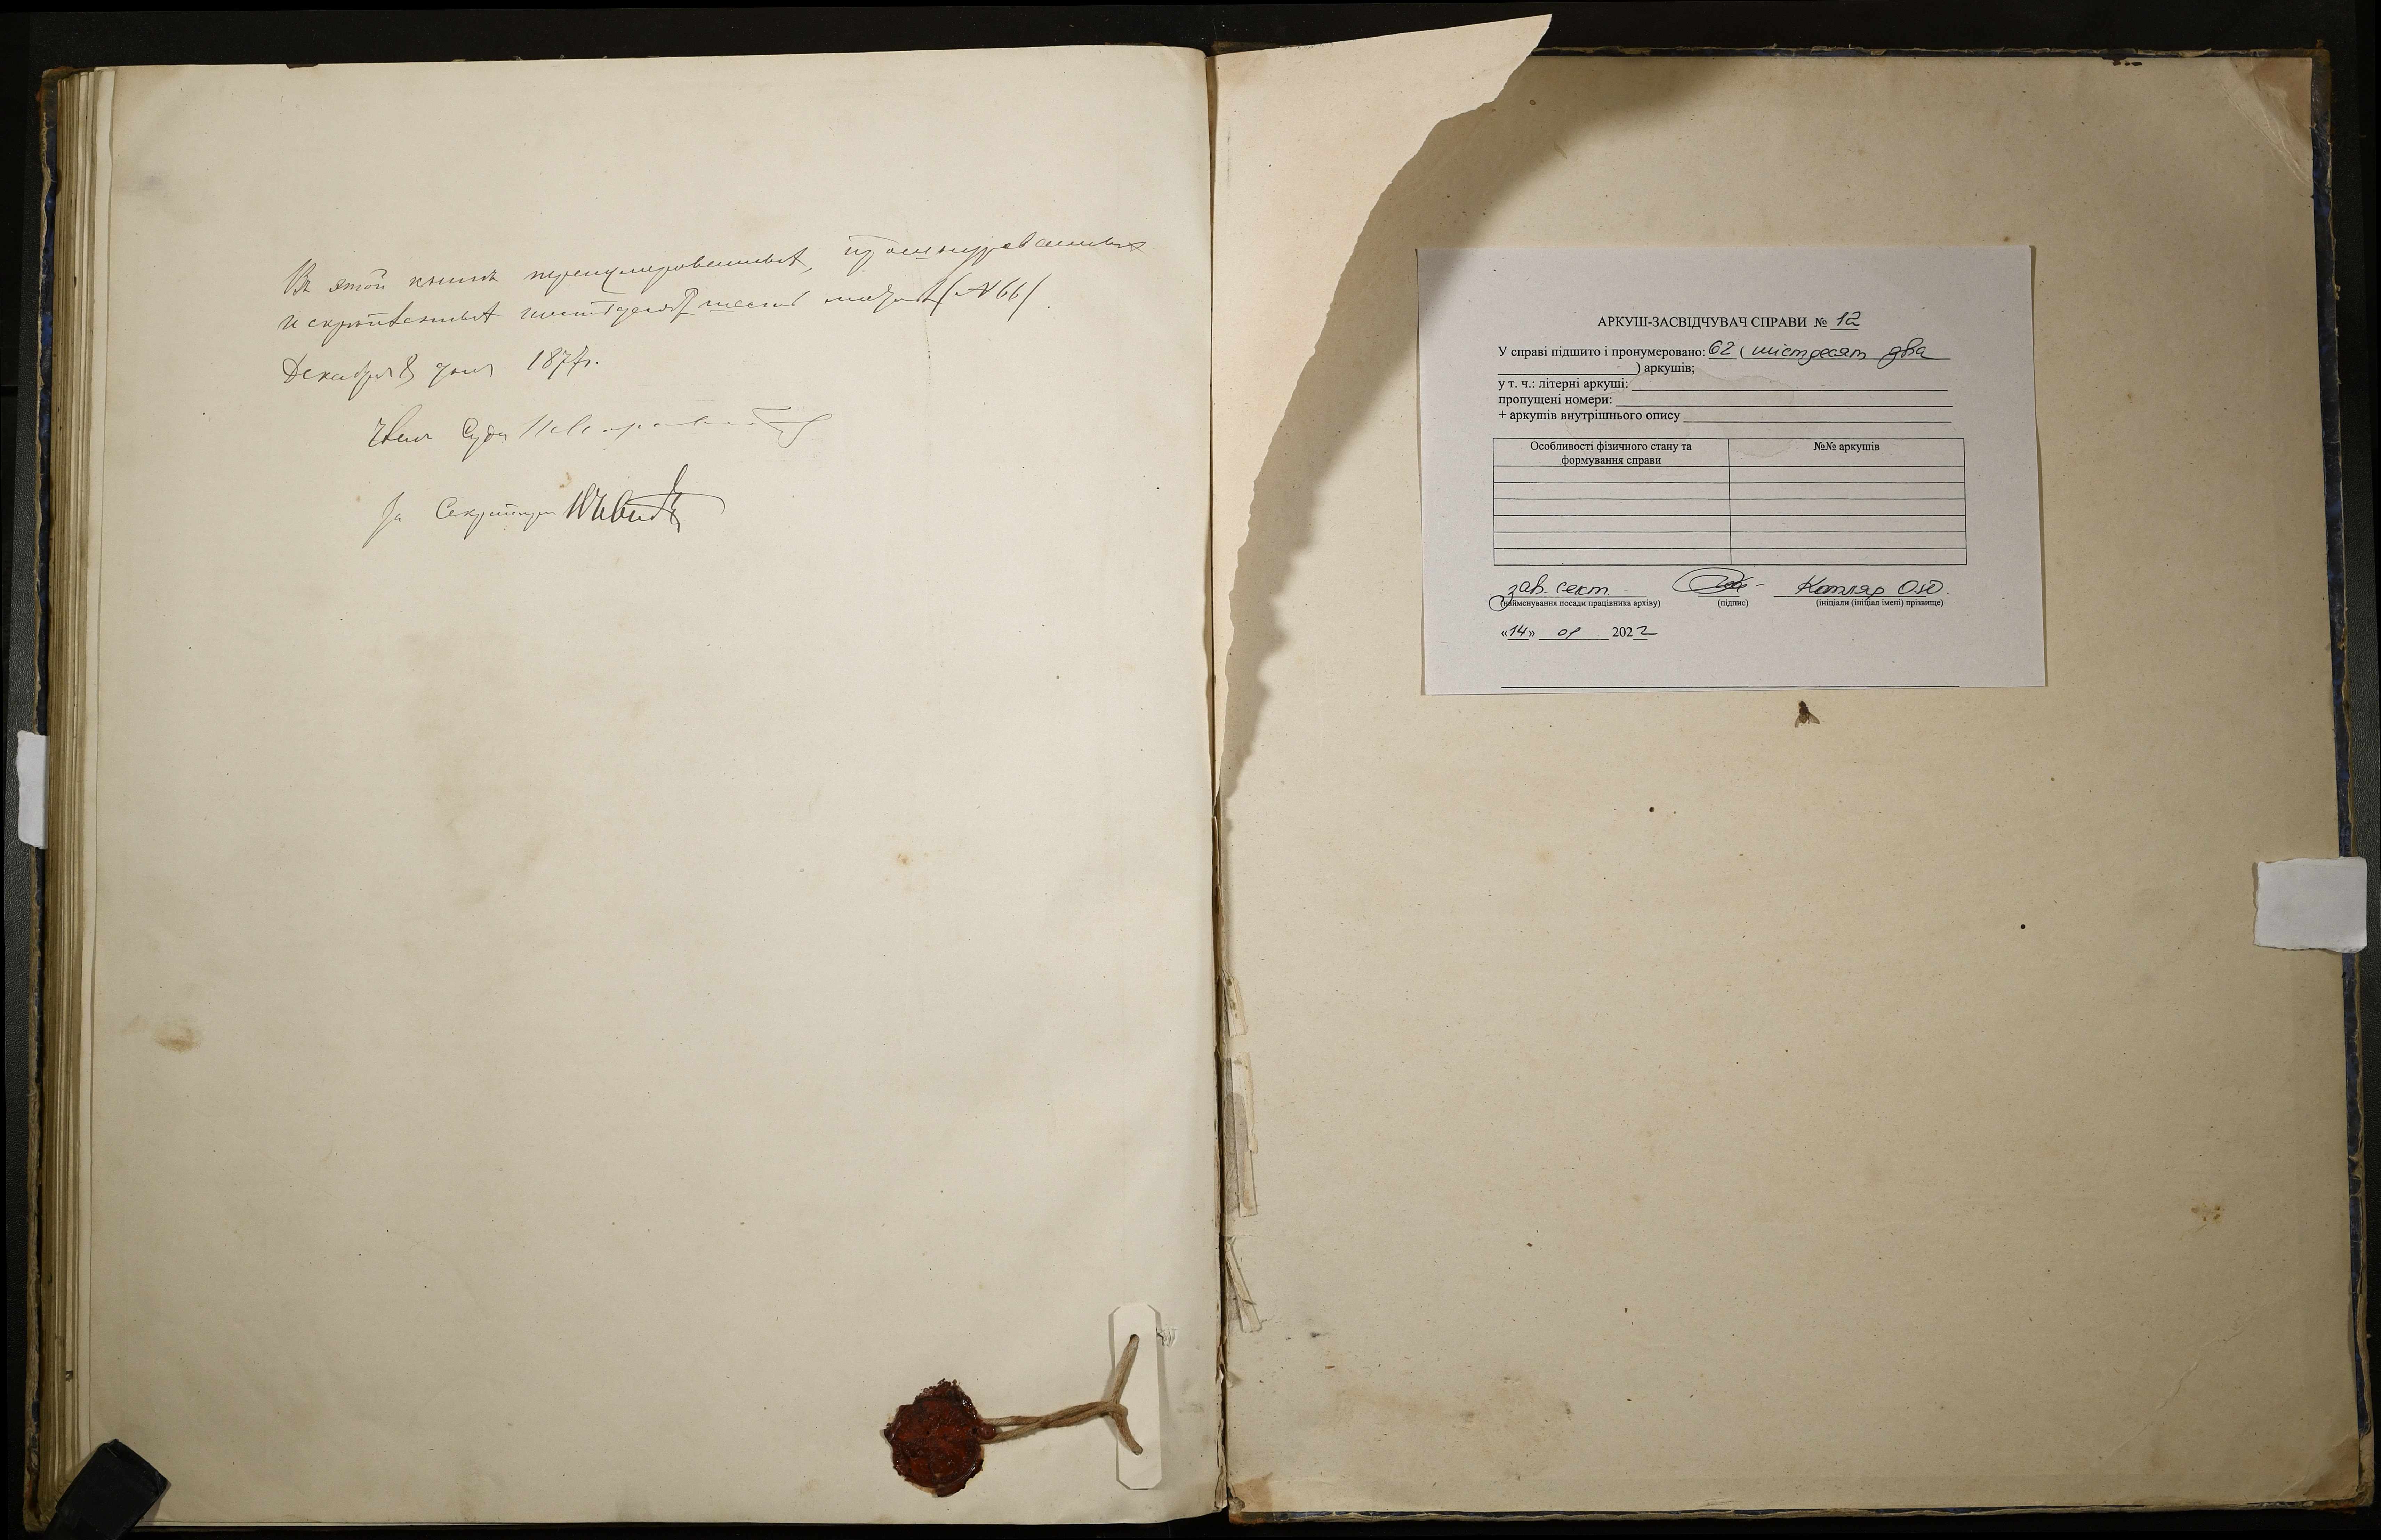 Въ этой книгѣ перенумерованныхъ, прошнурованныхъ
и скрѣпленныхъ шестьдесятъ шесть листовъ (№ 66).
Декабря 8 дня 1877 г.
Членъ Суда
За Секретаря
АРКУШ-ЗАСВІДЧУВАЧ СПРАВИ № 12
У справі підшито і пронумеровано: 62 ( шістдесят два
) аркушів;
у т. ч.: літерні аркуші:
пропущені номери:
+ аркушів внутрішнього опису
Особливості фізичного стану та №№ аркушів
формування справи
зав. сект. Котляр О.Ю.
(найменування посади працівника архіву) (підпис) (ініціали (ініціал імені) прізвище)
«14» 01 2022